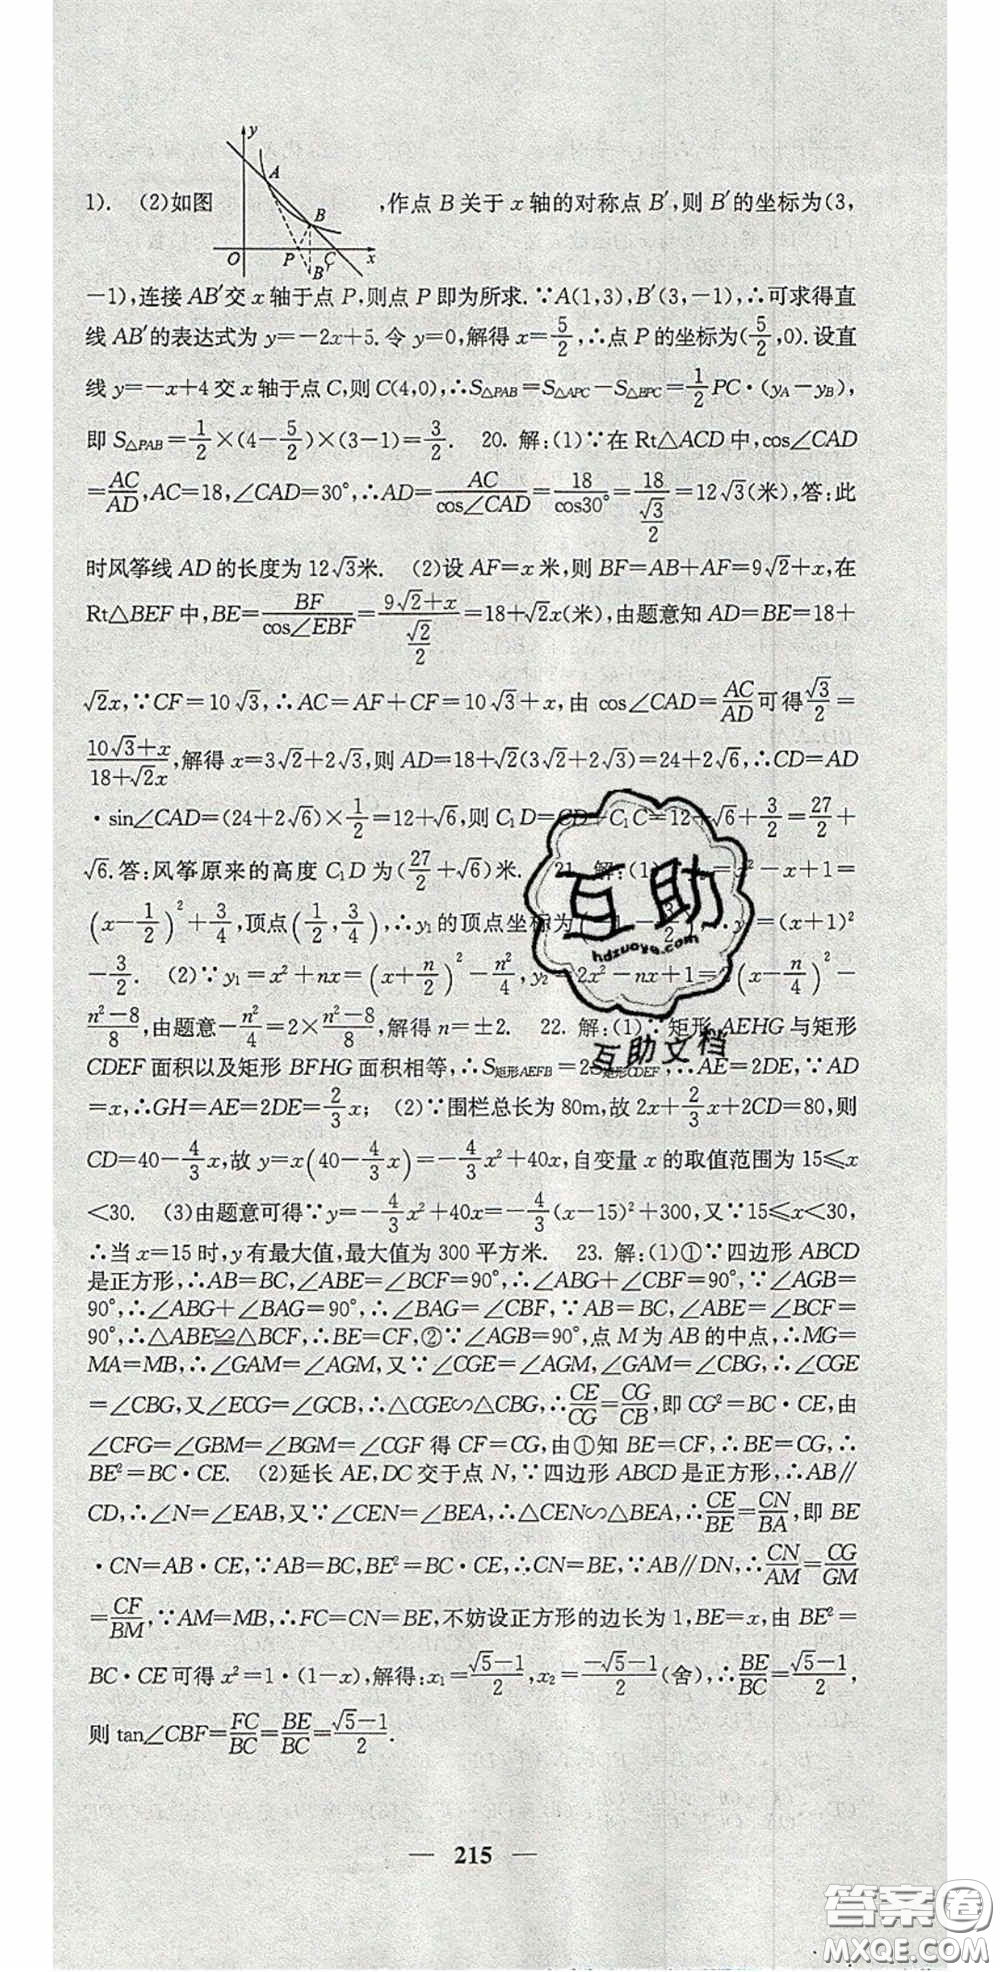 y
A
B
O
P
C
x
B′
1). (2)如图 ,作点 B 关于 x 轴的对称点 B′,则 B′的坐标为(3,
−1),连接 AB′交 x 轴于点 P,则点 P 即为所求.∵A(1,3),B′(3,−1),∴可求得直
线 AB′的表达式为 y=−2x+5.令 y=0,解得 x=5/2,∴点 P 的坐标为(5/2,0).设直
线 y=−x+4 交 x 轴于点 C,则 C(4,0),∴S△PAB=S△APC−S△BPC=1/2PC·(yA−yB),
即 S△PAB=1/2×(4−5/2)×(3−1)=3/2. 20. 解:(1)∵在 Rt△ACD 中,cos∠CAD
=AC/AD,AC=18,∠CAD=30°,∴AD=AC/cos∠CAD=18/cos30°=18/(√3/2)=12√3(米),答:此
时风筝线 AD 的长度为 12√3米. (2)设 AF=x 米,则 BF=AB+AF=9√2+x,在
Rt△BEF 中,BE=BF/cos∠EBF=(9√2+x)/(√2/2)=18+√2x(米),由题意知 AD=BE=18+
√2x,∵CF=10√3,∴AC=AF+CF=10√3+x,由 cos∠CAD=AC/AD可得√3/2=
(10√3+x)/(18+√2x),解得 x=3√2+2√3,则 AD=18+√2(3√2+2√3)=24+2√6,∴CD=AD
·sin∠CAD=(24+2√6)×1/2=12+√6,则 C₁D=CD+C₁C=12+√6+3/2=27/2+
√6.答:风筝原来的高度 C₁D 为(27/2+√6)米. 21. 解:(1) =x²−x+1=
(x−1/2)²+3/4,顶点(1/2,3/4),∴y₁的顶点坐标为(−1,−3/2),∴y₁=(x+1)²
−3/2. (2)∵y₁=x²+nx=(x+n/2)²−n²/4,y₂=2x²−nx+1=2(x−n/4)²−
(n²−8)/8,由题意−n²/4=2×(n²−8)/8,解得 n=±2. 22. 解:(1)∵矩形 AEHG 与矩形
CDEF 面积以及矩形 BFHG 面积相等,∴S矩形AEFB=2S矩形CDEF,∴AE=2DE,∵AD
=x,∴GH=AE=2DE=2/3x; (2)∵围栏总长为 80m,故 2x+2/3x+2CD=80,则
CD=40−4/3x,故 y=x(40−4/3x)=−4/3x²+40x,自变量 x 的取值范围为 15≤x
<30. (3)由题意可得∵y=−4/3x²+40x=−4/3(x−15)²+300,又∵15≤x<30,
∴当 x=15 时,y 有最大值,最大值为 300 平方米. 23. 解:(1)①∵四边形 ABCD
是正方形,∴AB=BC,∠ABE=∠BCF=90°,∴∠ABG+∠CBF=90°,∵∠AGB=
90°,∴∠ABG+∠BAG=90°,∴∠BAG=∠CBF,∵AB=BC,∠ABE=∠BCF=
90°,∴△ABE≌△BCF,∴BE=CF,②∵∠AGB=90°,点 M 为 AB 的中点,∴MG=
MA=MB,∴∠GAM=∠AGM,又∵∠CGE=∠AGM,∠GAM=∠CBG,∴∠CGE
=∠CBG,又∠ECG=∠GCB,∴△CGE∽△CBG,∴CE/CG=CG/CB,即 CG²=BC·CE,由
∠CFG=∠GBM=∠BGM=∠CGF 得 CF=CG,由①知 BE=CF,∴BE=CG,∴
BE²=BC·CE. (2)延长 AE,DC 交于点 N,∵四边形 ABCD 是正方形,∴AB∥
CD,∴∠N=∠EAB,又∵∠CEN=∠BEA,∴△CEN∽△BEA,∴CE/BE=CN/BA,即 BE
·CN=AB·CE,∵AB=BC,BE²=BC·CE,∴CN=BE,∵AB∥DN,∴CN/AM=CG/GM
=CF/BM,∵AM=MB,∴FC=CN=BE,不妨设正方形的边长为 1,BE=x,由 BE²=
BC·CE 可得 x²=1·(1−x),解得:x₁=(√5−1)/2,x₂=(−√5−1)/2(舍),∴BE/BC=(√5−1)/2,
则 tan∠CBF=FC/BC=BE/BC=(√5−1)/2.
互助
hdzuoye.com
互助文档
— 215 —
答案圈
MXQE.COM